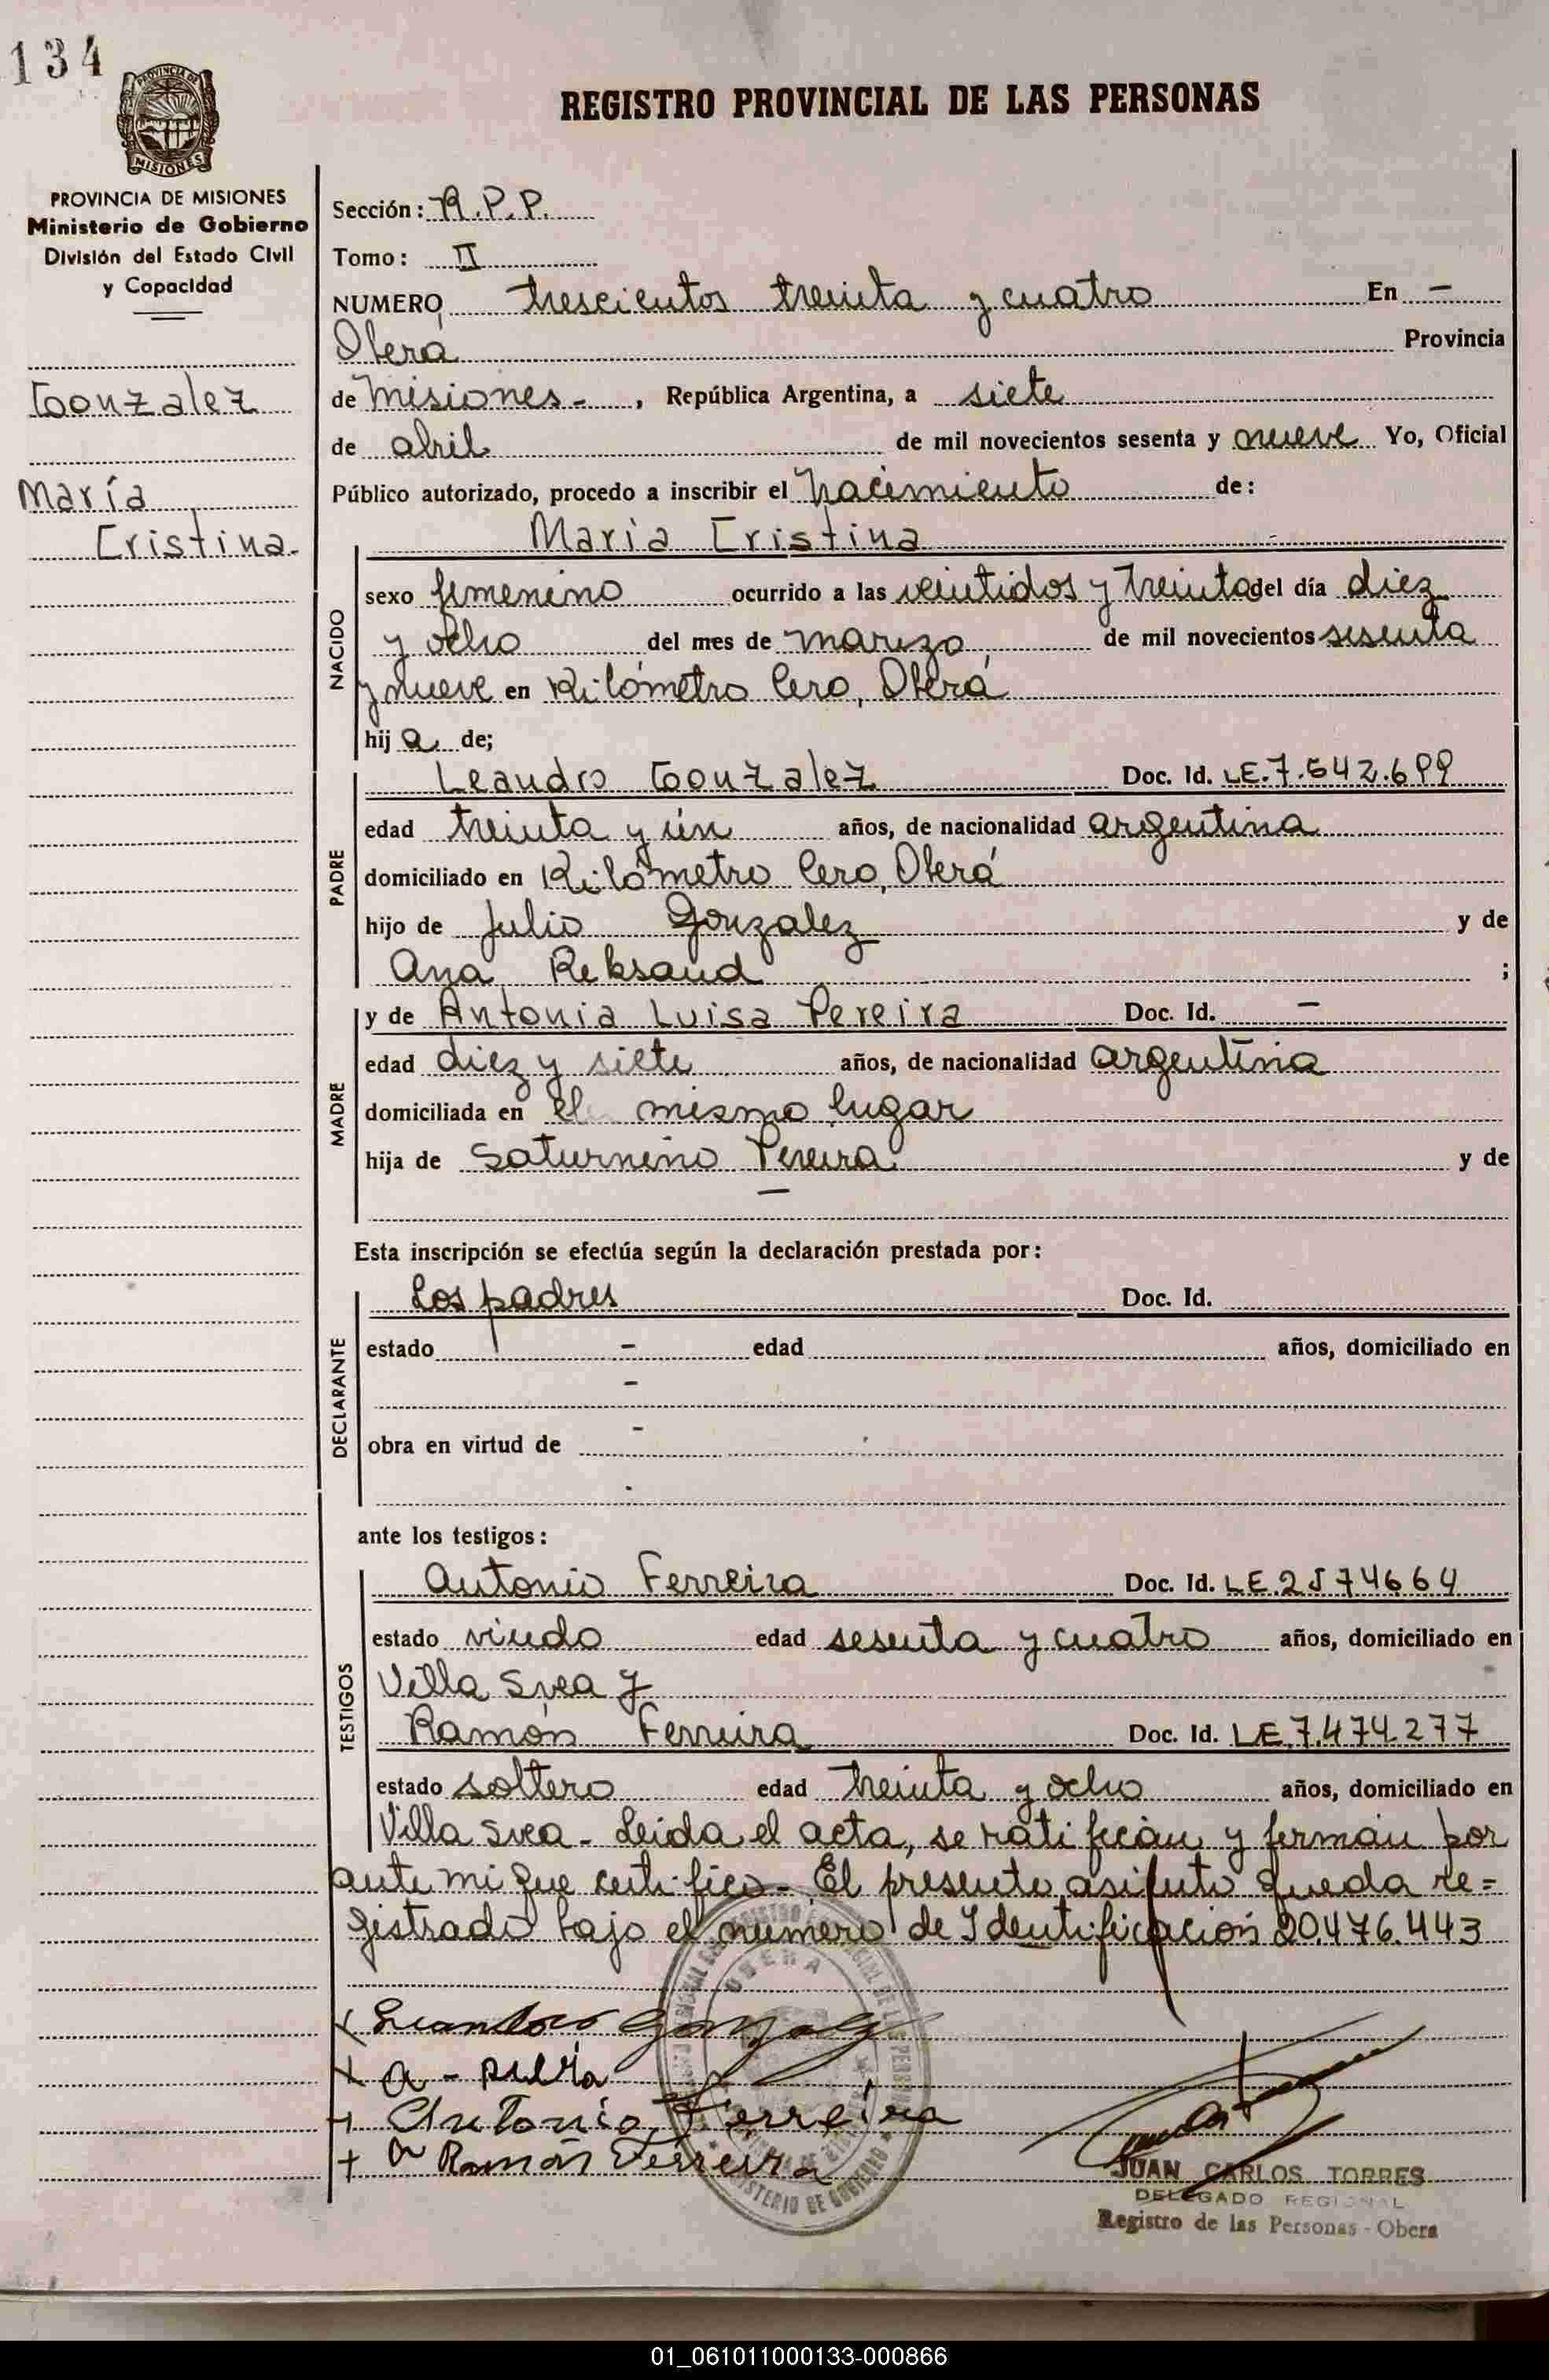 134
REGISTRO PROVINCIAL DE LAS PERSONAS
PROVINCIA DE MISIONES
PROVINCIA DE MISIONES
Ministerio de Gobierno
División del Estado Civil
y Capacidad
Gonzalez
María
Cristina.
Sección: R.P.P.
Tomo: II
NUMERO trescientos treinta y cuatro En -
Oberá Provincia
de Misiones-, República Argentina, a siete
de abril de mil novecientos sesenta y nueve Yo, Oficial
Público autorizado, procedo a inscribir el nacimiento de:
María Cristina
NACIDO
sexo femenino ocurrido a las veintidos y treinta del día diez
y ocho del mes de marzo, de mil novecientos sesenta
y nueve en Kilómetro Cero, Oberá
hija de;
PADRE
Leandro Gonzalez Doc. Id. LE.7.542.699
edad treinta y ún años, de nacionalidad argentina
domiciliado en Kilómetro Cero, Oberá
hijo de Julio Gonzalez y de
Ana Reksaud ;
MADRE
y de Antonia Luisa Pereira Doc. Id. -
edad diez y siete años, de nacionalidad argentina
domiciliada en el mismo lugar
hija de Saturnino Pereira y de
-
Esta inscripción se efectúa según la declaración prestada por:
DECLARANTE
Los padres Doc. Id.
estado - edad años, domiciliado en
-
obra en virtud de -
ante los testigos:
TESTIGOS
Antonio Ferreira Doc. Id. LE.2574664
estado viudo edad sesenta y cuatro años, domiciliado en
Villa Svea y
Ramón Ferreira Doc. Id. LE.7.474.277
estado soltero edad treinta y ocho años, domiciliado en
Villa Svea - Leida el acta, se ratifican y firman por
ante mi que certifico - El presente asiento queda re=
gistrado bajo el número de Identificación 20.476.443
OBERA
MINISTERIO DE GOBIERNO
x Leandro Gonzalez
+ a -
+ Antonio Ferreira
+ Ramón Ferreira
JUAN CARLOS TORRES
DELEGADO REGIONAL
Registro de las Personas - Obera
01_061011000133-000866